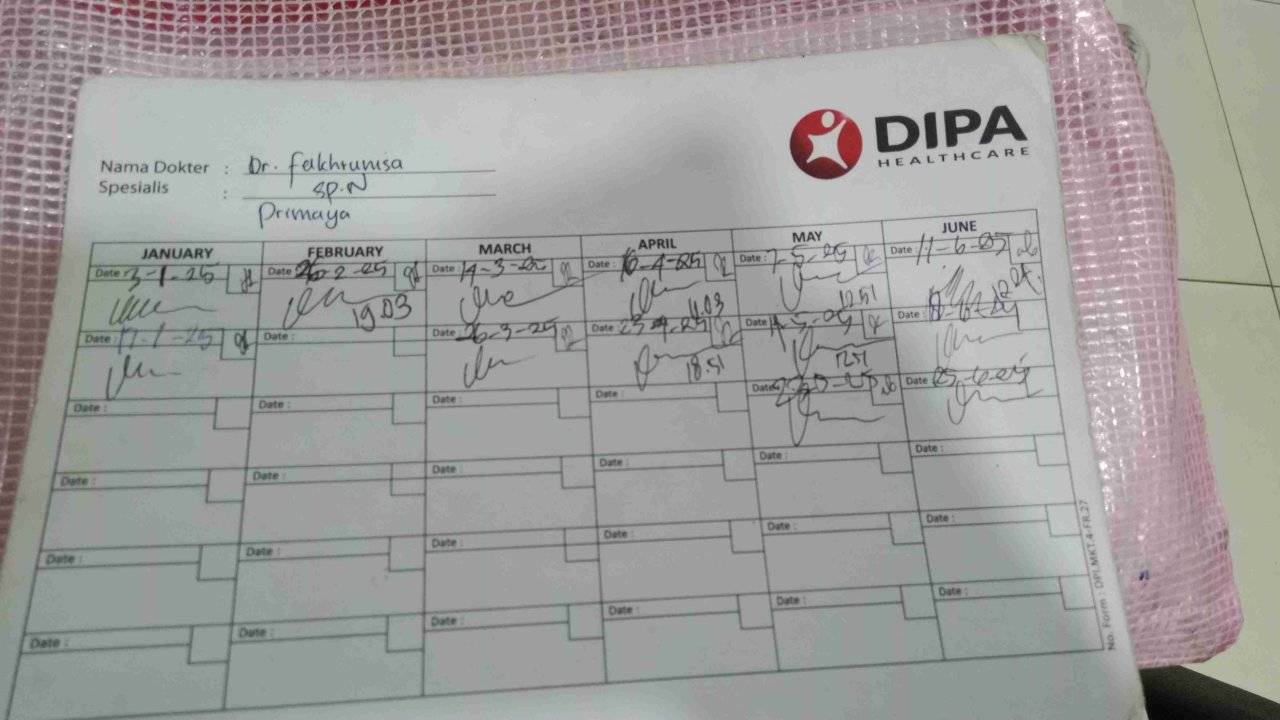 DIPA
HEALTHCARE
Nama Dokter : Dr. Fakhrunisa
Spesialis : SP.N
Primaya
JANUARY FEBRUARY MARCH APRIL MAY JUNE
Date : 3-1-25 Date : 26-2-25 Date : 14-3-25 Date : 16-4-25 Date : 7-5-25 Date : 11-6-25
19.03 11.03 12.51
Date : 17-1-25 Date : Date : 26-3-25 Date : 23-4-25 Date : 14-5-25 18-6-25
18.51 17.51
Date : Date : Date : Date : Date : Date : 25-6-25
Date : Date : Date : Date : Date : Date :
Date : Date : Date : Date : Date : Date :
Date : Date : Date : Date : Date : Date :
No. Form : DPI.MKT.4-FR.27